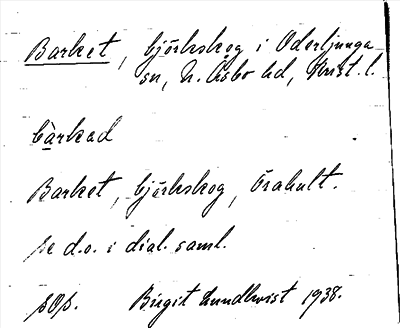 Barket, björkskog i Oderljunga
sn, N. Åsbo hd, Krist. l.
bàrkad
Barket, björkskog, Örahult.
se d.o. i dial. saml.
sOs. Birgit Lundkvist 1938.